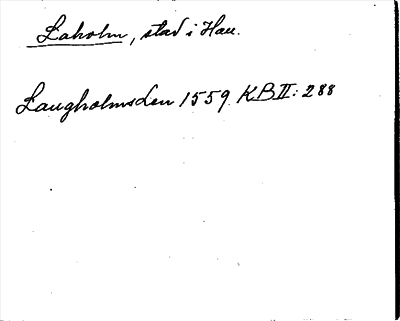 Laholm, stad i Hall.
Laugholmsden 1559 KB II: 288